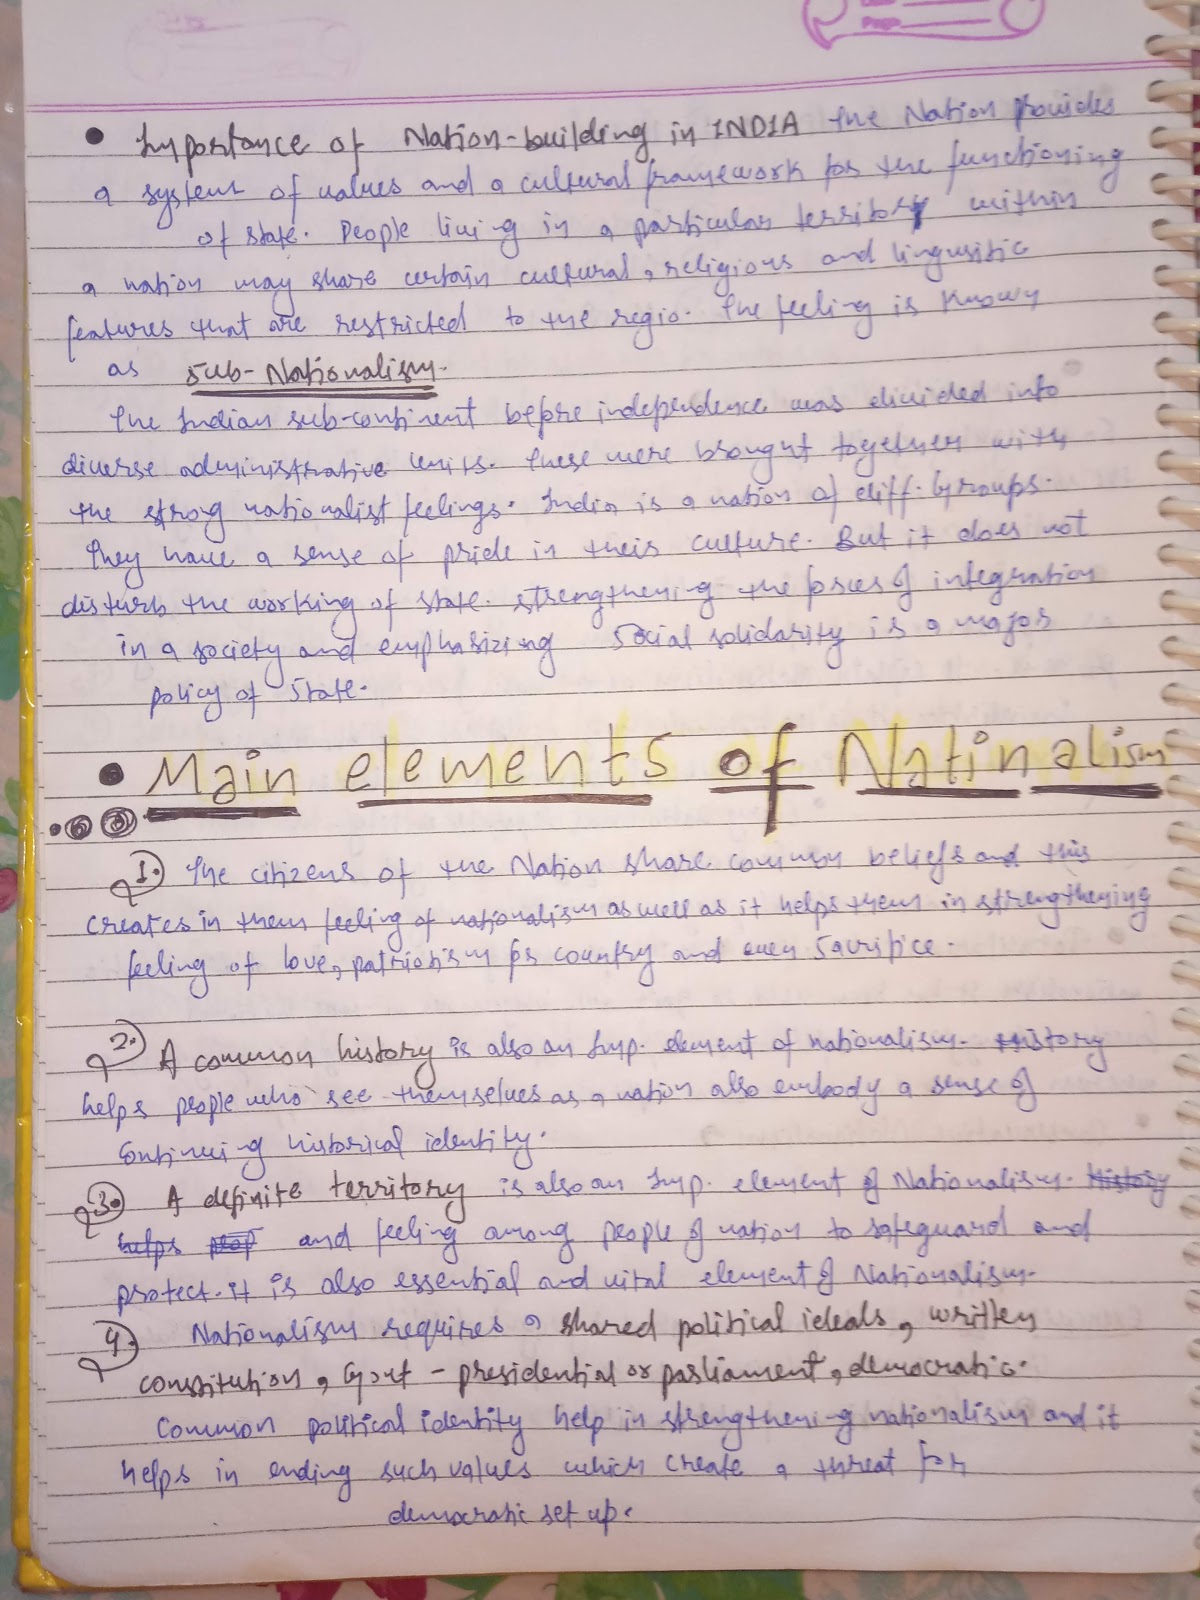 Page
• Importance of Nation-building in INDIA the Nation provides
a system of values and a cultural framework for the functioning
of state. People living in a particular territory within
a nation may share certain cultural, religious and lingusitic
features that are restricted to the regio. The feeling is known
as Sub-Nationalism.
The Indian sub-continent before independence was divided into
diverse administrative units. These were brought together with
the strong nationalist feelings. India is a nation of diff. groups.
They have a sense of pride in their culture. But it does not
disturb the working of state. Strengthening the forces of integration
in a society and emphasizing Social solidarity is a major
policy of State.
• Main elements of Natinalism
1. The citizens of the Nation share common beliefs and this
creates in them feeling of nationalism as well as it helps them in strengthening
feeling of love, patriotism for country and even Sacrifice.
2. A common history is also an Imp. element of nationalism. History
helps people who see themselves as a nation also embody a sense of
Continuing historical identity.
3. A definite territory is also an Imp. element of Nationalism. History
helps peop and feeling among people of nation to safeguard and
protect. it is also essential and vital element of Nationalism.
4. Nationalism requires a shared political ideals, written
constitution, Govt - presidential or parliament, democratic.
Common political identity help in strengthening nationalism and it
helps in ending such values which create a threat for
democratic set up.